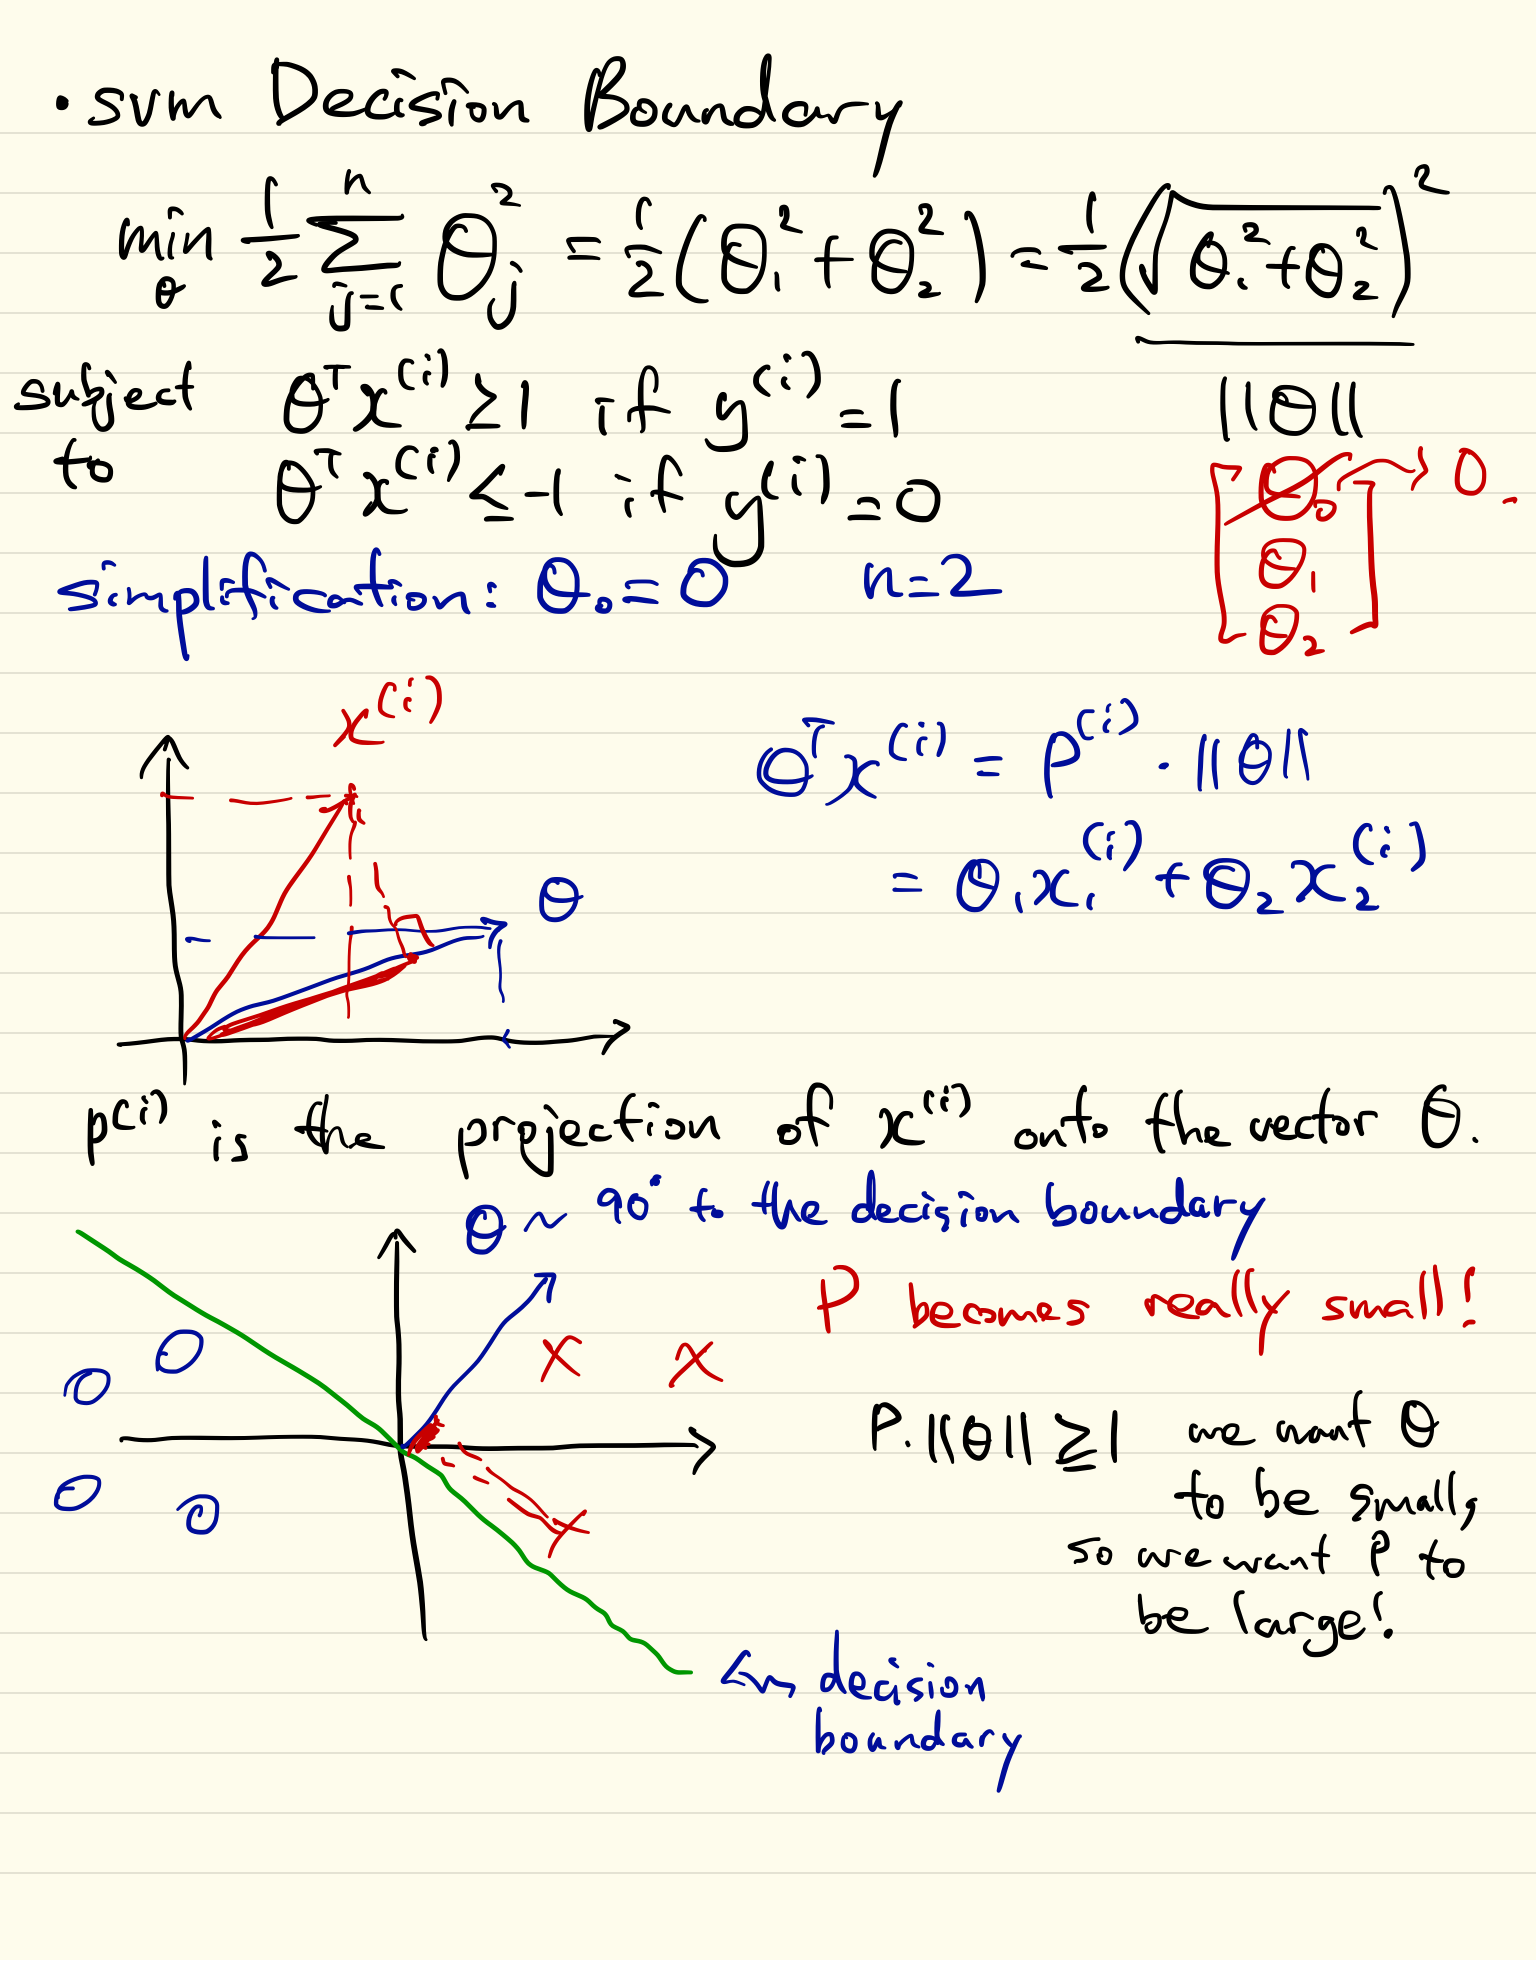 • svm Decision Boundary
min θ 1/2 Σ j=1 n θj² = 1/2 (θ1² + θ2²) = 1/2 (√θ1² + θ2²)²
subject to θᵀx⁽ⁱ⁾ ≥ 1 if y⁽ⁱ⁾ = 1 ||θ||
θᵀx⁽ⁱ⁾ ≤ -1 if y⁽ⁱ⁾ = 0
[θ0 → 0.
θ1
θ2]
simplification: θ0 = 0 n = 2
x⁽ⁱ⁾
θᵀx⁽ⁱ⁾ = P⁽ⁱ⁾ · ||θ||
θ
= θ1x1⁽ⁱ⁾ + θ2x2⁽ⁱ⁾
p⁽ⁱ⁾ is the projection of x⁽ⁱ⁾ onto the vector θ.
θ ~ 90° to the decision boundary
P becomes really small!
P. ||θ|| ≥ 1 we want θ
to be small,
so we want P to
be large!
decision
boundary